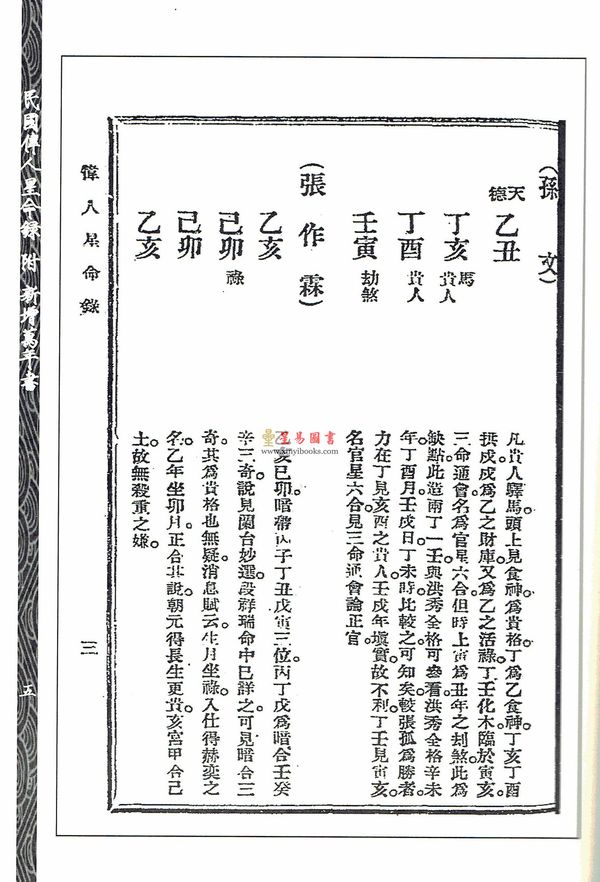 (孫文)
天德 乙丑
丁亥 馬 貴人
丁酉 貴人
壬寅 劫煞
凡貴人驛馬頭上見食神。爲貴格。丁爲乙食神。丁亥丁酉
拱戌。戌爲乙之財庫。又爲乙之活祿。丁壬化木。臨於寅亥。
三命通會。名爲官星六合。但時上寅爲丑年之刦煞。此爲
缺點。此造兩丁一壬。與洪秀全格可叅看。洪秀全格辛未
年。丁酉月。壬戌日。丁未時。比較之可知矣。較張孤爲勝者。
力在丁見亥酉之貴人。壬戌年塡實。故不利。丁壬見寅亥。
名官星六合。見三命通會論正官。
(張作霖)
乙亥
己卯 祿
己卯
乙亥
乙亥己卯。暗帶丙子丁丑戊寅三位。丙丁戊爲暗合壬癸
辛三奇。說見蘭台妙選。段祥瑞命中已詳之。可見暗合三
奇。其爲貴格也無疑。消息賦云。生月坐祿。入仕得赫奕之
名。乙年坐卯月。正合其說。朝元得長生更貴。亥宮甲合己
土。故無殺重之嫌。
偉人星命錄
三
民國偉人星命錄 附 新增萬年書
五
星易圖書
www.xinyibooks.com